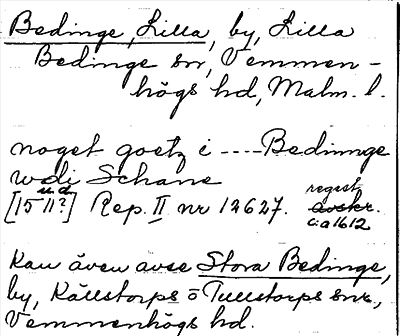 Bedinge, Lilla, by, Lilla
Bedinge sn, Vemmen-
högs hd, Malm. l.
noget goetz i ---- Bedinnge
udi Schane
[15 11?] Rep. II nr 12627. regest avskr. c:a 1612
Kan även avse Stora Bedinge,
by, Källstorps o Tullstorps snr,
Vemmenhögs hd.